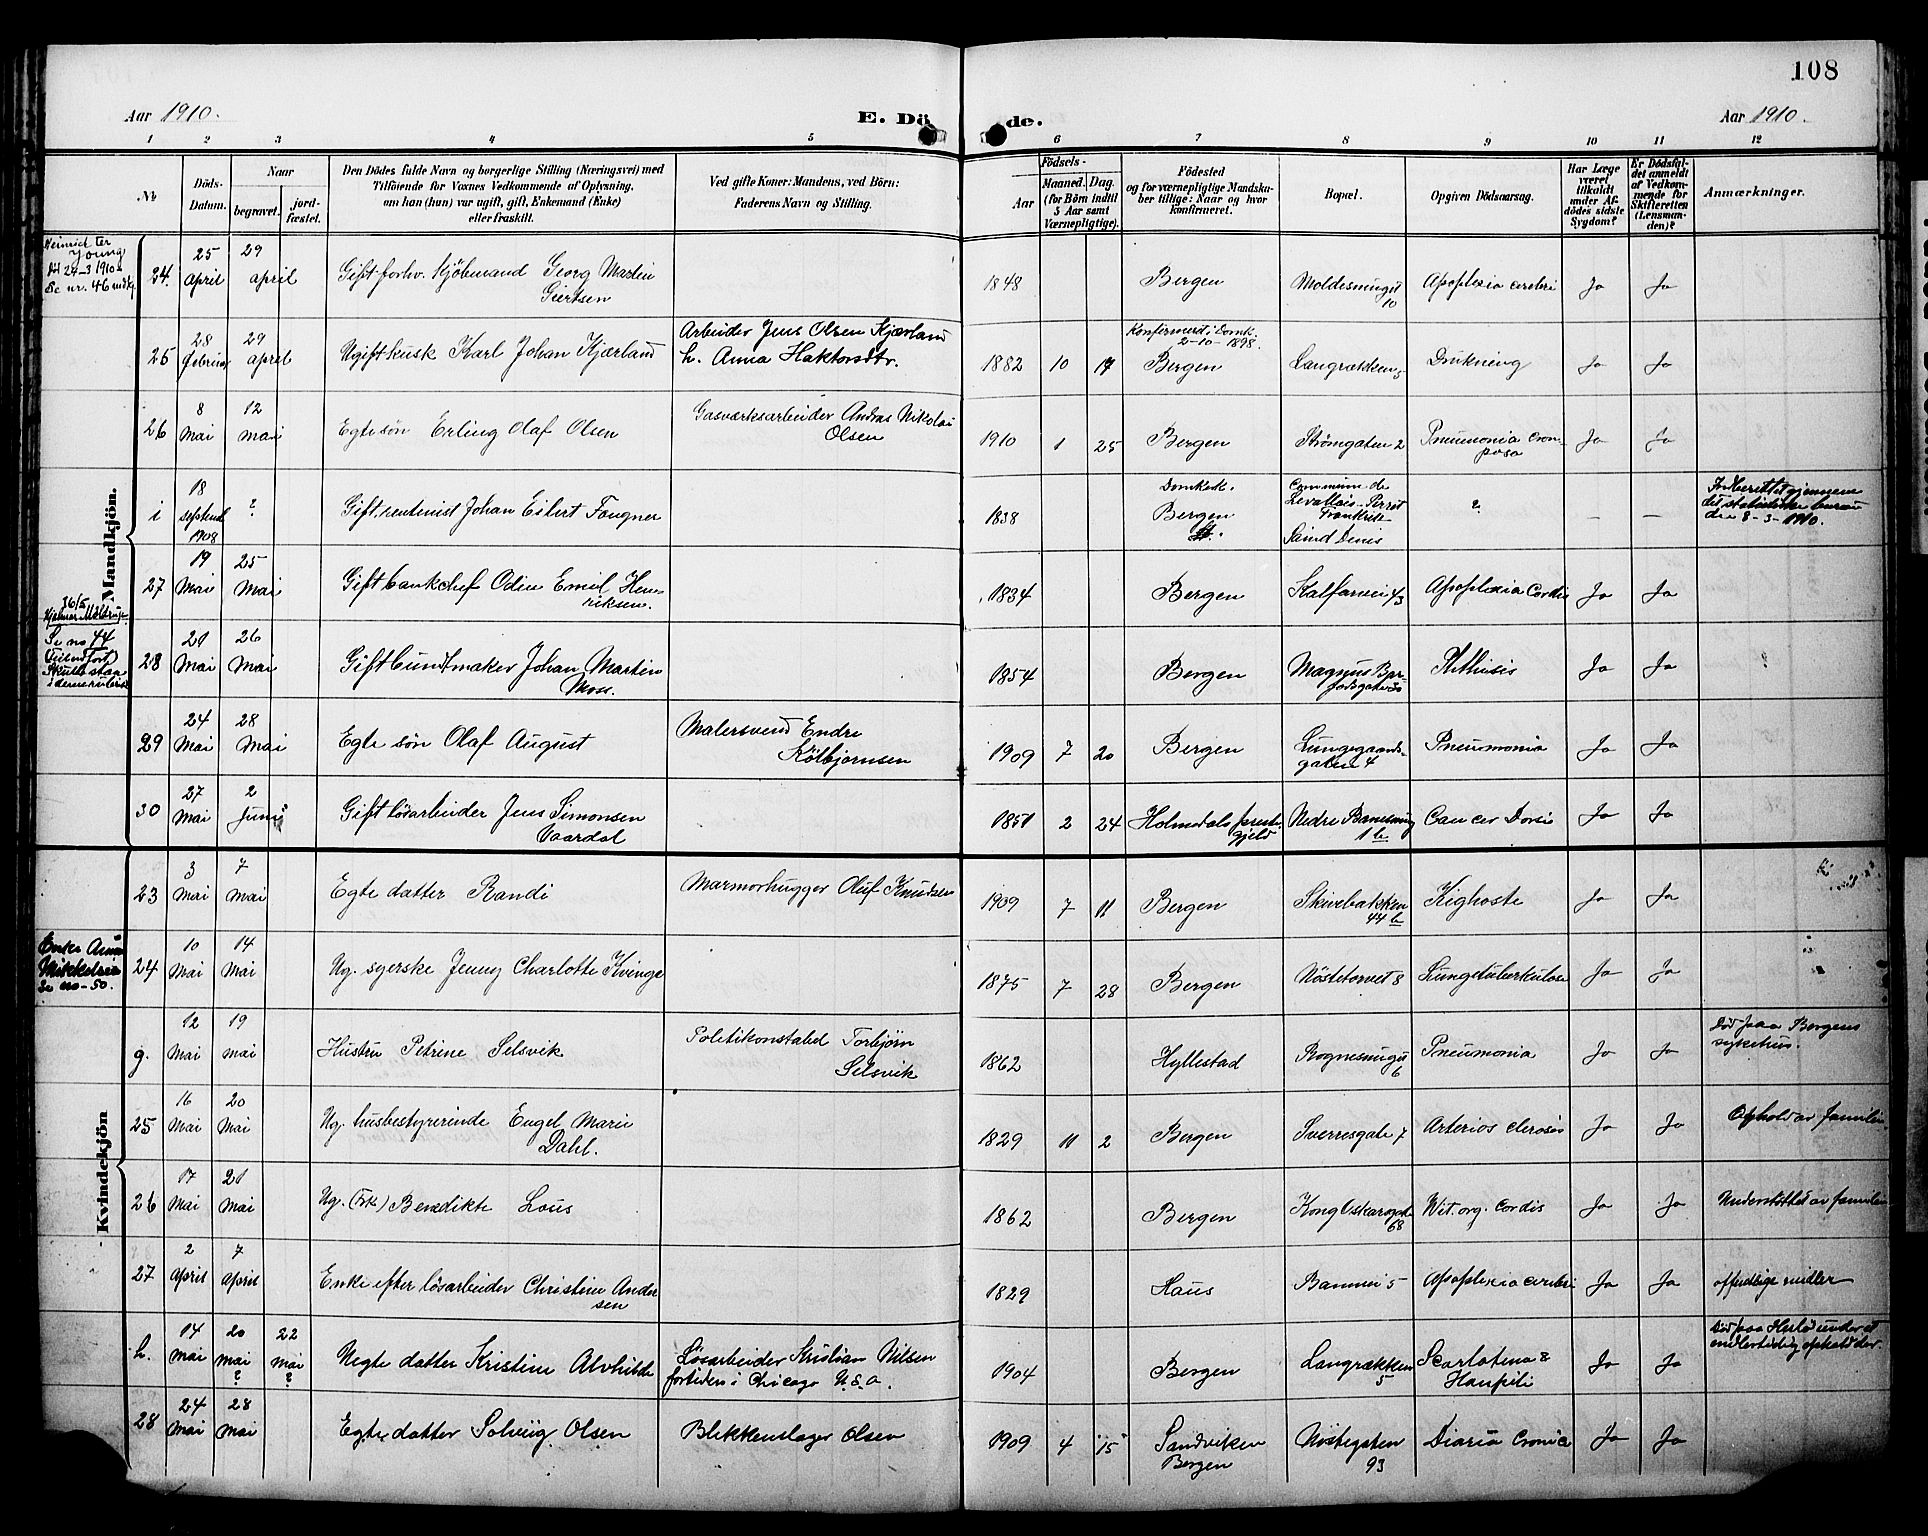 108
Aar 1910.
E. Dö de.
Aar 1910.
1 2 3 4 5 6 7 8 9 10 11 12
No.
Döds-Datum.
Naar
begravet.
jord-fæstet.
Den Dödes fulde Navn og borgerlige Stilling (Næringsvei) med
Tilföiende for Voxnes Vedkommende af Oplysning,
om han (hun) var ugift, gift, Enkemand (Enke)
eller fraskilt.
Ved gifte Koner: Mandens, ved Börn:
Faderens Navn og Stilling.
Födsels-
Aar
Maaned. Dag.
(for Börn indtil
5 Aar samt
Værnepligtige).
Födested
og for værnepligtige Mandska-
ber tillige: Naar og hvor
konfirmeret.
Bopæl.
Opgiven Dödsaarsag.
Har Læge
været
tilkaldt
under Af-
dödes sidste
Sygdom?
Er Dödsfal-
det anmeldt
af Vedkom-
mende for
Skifteretten
(Lensman-
den)?
Anmærkninger.
Mandkjön.
Heinrich ter
Young
Se nr. 46 mdkj.
24. 25 April 29 april Gift forhv. Kjöbmand Georg Martin Giertsen 1848 Bergen Moldesmuget 10 Apoplexia cerebri Ja Ja
25 28 Februar 29 april Ugift kusk Karl Johan Kjærland Arbeider Jens Olsen Kjærland h. Anna Haktorsdtr. 1882 10 17 Konfirmerd i Domk. 2-10-1898. Bergen Langrækken 5 Drukning Ja Ja
26 8 Mai 12 mai Egte sön Erling Olaf Olsen Gasværksarbeider Andras Nikolai Olsen 1910 1 25 Bergen Strömgaten 2 Pneumonia Crouposa Ja Ja
i 18 septemb 1908 ? Gift, rentenist Johan Eilert Fougner 1838 Domkirk. Bergen Commune de Levallois-Perret Frankrike Saint Denis ? — — Indberettet gjennem det statistiske bureau den 8-3-1910.
27 19 Mai 25 Mai Gift bankchef Odin Emil Henriksen. 1834 Bergen Kalfarvei 43 Apoplexia Cordis Ja Ja
26/5
Hjalmar Moldrup
Se no 44
28 21 Mai 26 Mai Gift buntmaker Johan Martin Moss. 1854 Bergen Magnus Barfodsgate Phthisis Ja Ja
29 24 Mai 28 Mai Egte sön Olaf August Malersvend Endre Kolbjörnsen 1909 7 20 Bergen Lungegaardsgaten 4 Pneumonia Ja Ja
30 27 Mai 2 Juni Gift lösarbeider Jens Simonsen Vaardal 1851 2 24 Holmedals prestegjeld Nedre 1 b Cancer Dorsi Ja Ja
Kvindekjön
23 3 Mai 7 mai Egte datter Randi Marmorhugger Oluf Knudsen 1909 7 11 Bergen Skivebakken 44 b Kighoste Ja Ja
Enke Anna
Mikkelsen
Se no-50.
24 10 Mai 14 Mai Ug. syerske Jenny Charlotte Kvinge 1875 7 28 Bergen Nöstetorvet 8 Lungetuberkulose Ja Ja
g. 12 Mai 19 mai Hustru Petrine Selsvik Politikonstabel Torbjörn Selsvik 1862 Hyllestad Rognesmuget 6 Pneumonia Ja Ja Död paa Bergens sykehus.
25 16 Mai 20 Mai Ug. husbestyrerinde Engel Marie Dahl. 1829 11 2 Bergen Sverresgate 7 Arterios clerosis Ja Ja Ophold av familien.
26 17 Mai 21 Mai Ug. (Frk) Benedikte Lous 1862 Bergen Kong Oskarsgate 68 Wit. org. Cordis Ja Ja Understöttet av familien
27 2 April 7 april Enke efter lösarbeider Christine Andersen 1829 Haus Banevei 5 Apoplexia cerebri Ja Ja offentlige midler
h. 14 Mai 20 mai ? 22 mai ? Uegte datter Kristine Alvhilde Lösarbeider Kristian Nilsen fortiden i Chicago U.S.a. 1904 Bergen Langrækken 5 Scarlatina & Ja Ja Död paa Herlö under et midlertidig ophold der.
28 24 Mai 28 Mai Egte datter Solveig Olsen Blikkenslager Olsen 1909 4 15 Sandviken Bergen Nöstegaten 93 Diaria Cronica Ja Ja